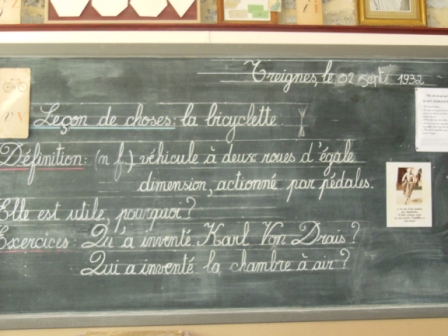 Treignes, le 02 Septe 1932
Leçon de choses: la bicyclette.
Définition: (n f.) véhicule à deux roues d'égale
dimension, actionné par pédales.
Elle est utile, pourquoi?
Exercices: Qu'a inventé Karl Von Drais?
Qui a inventé la chambre à air?